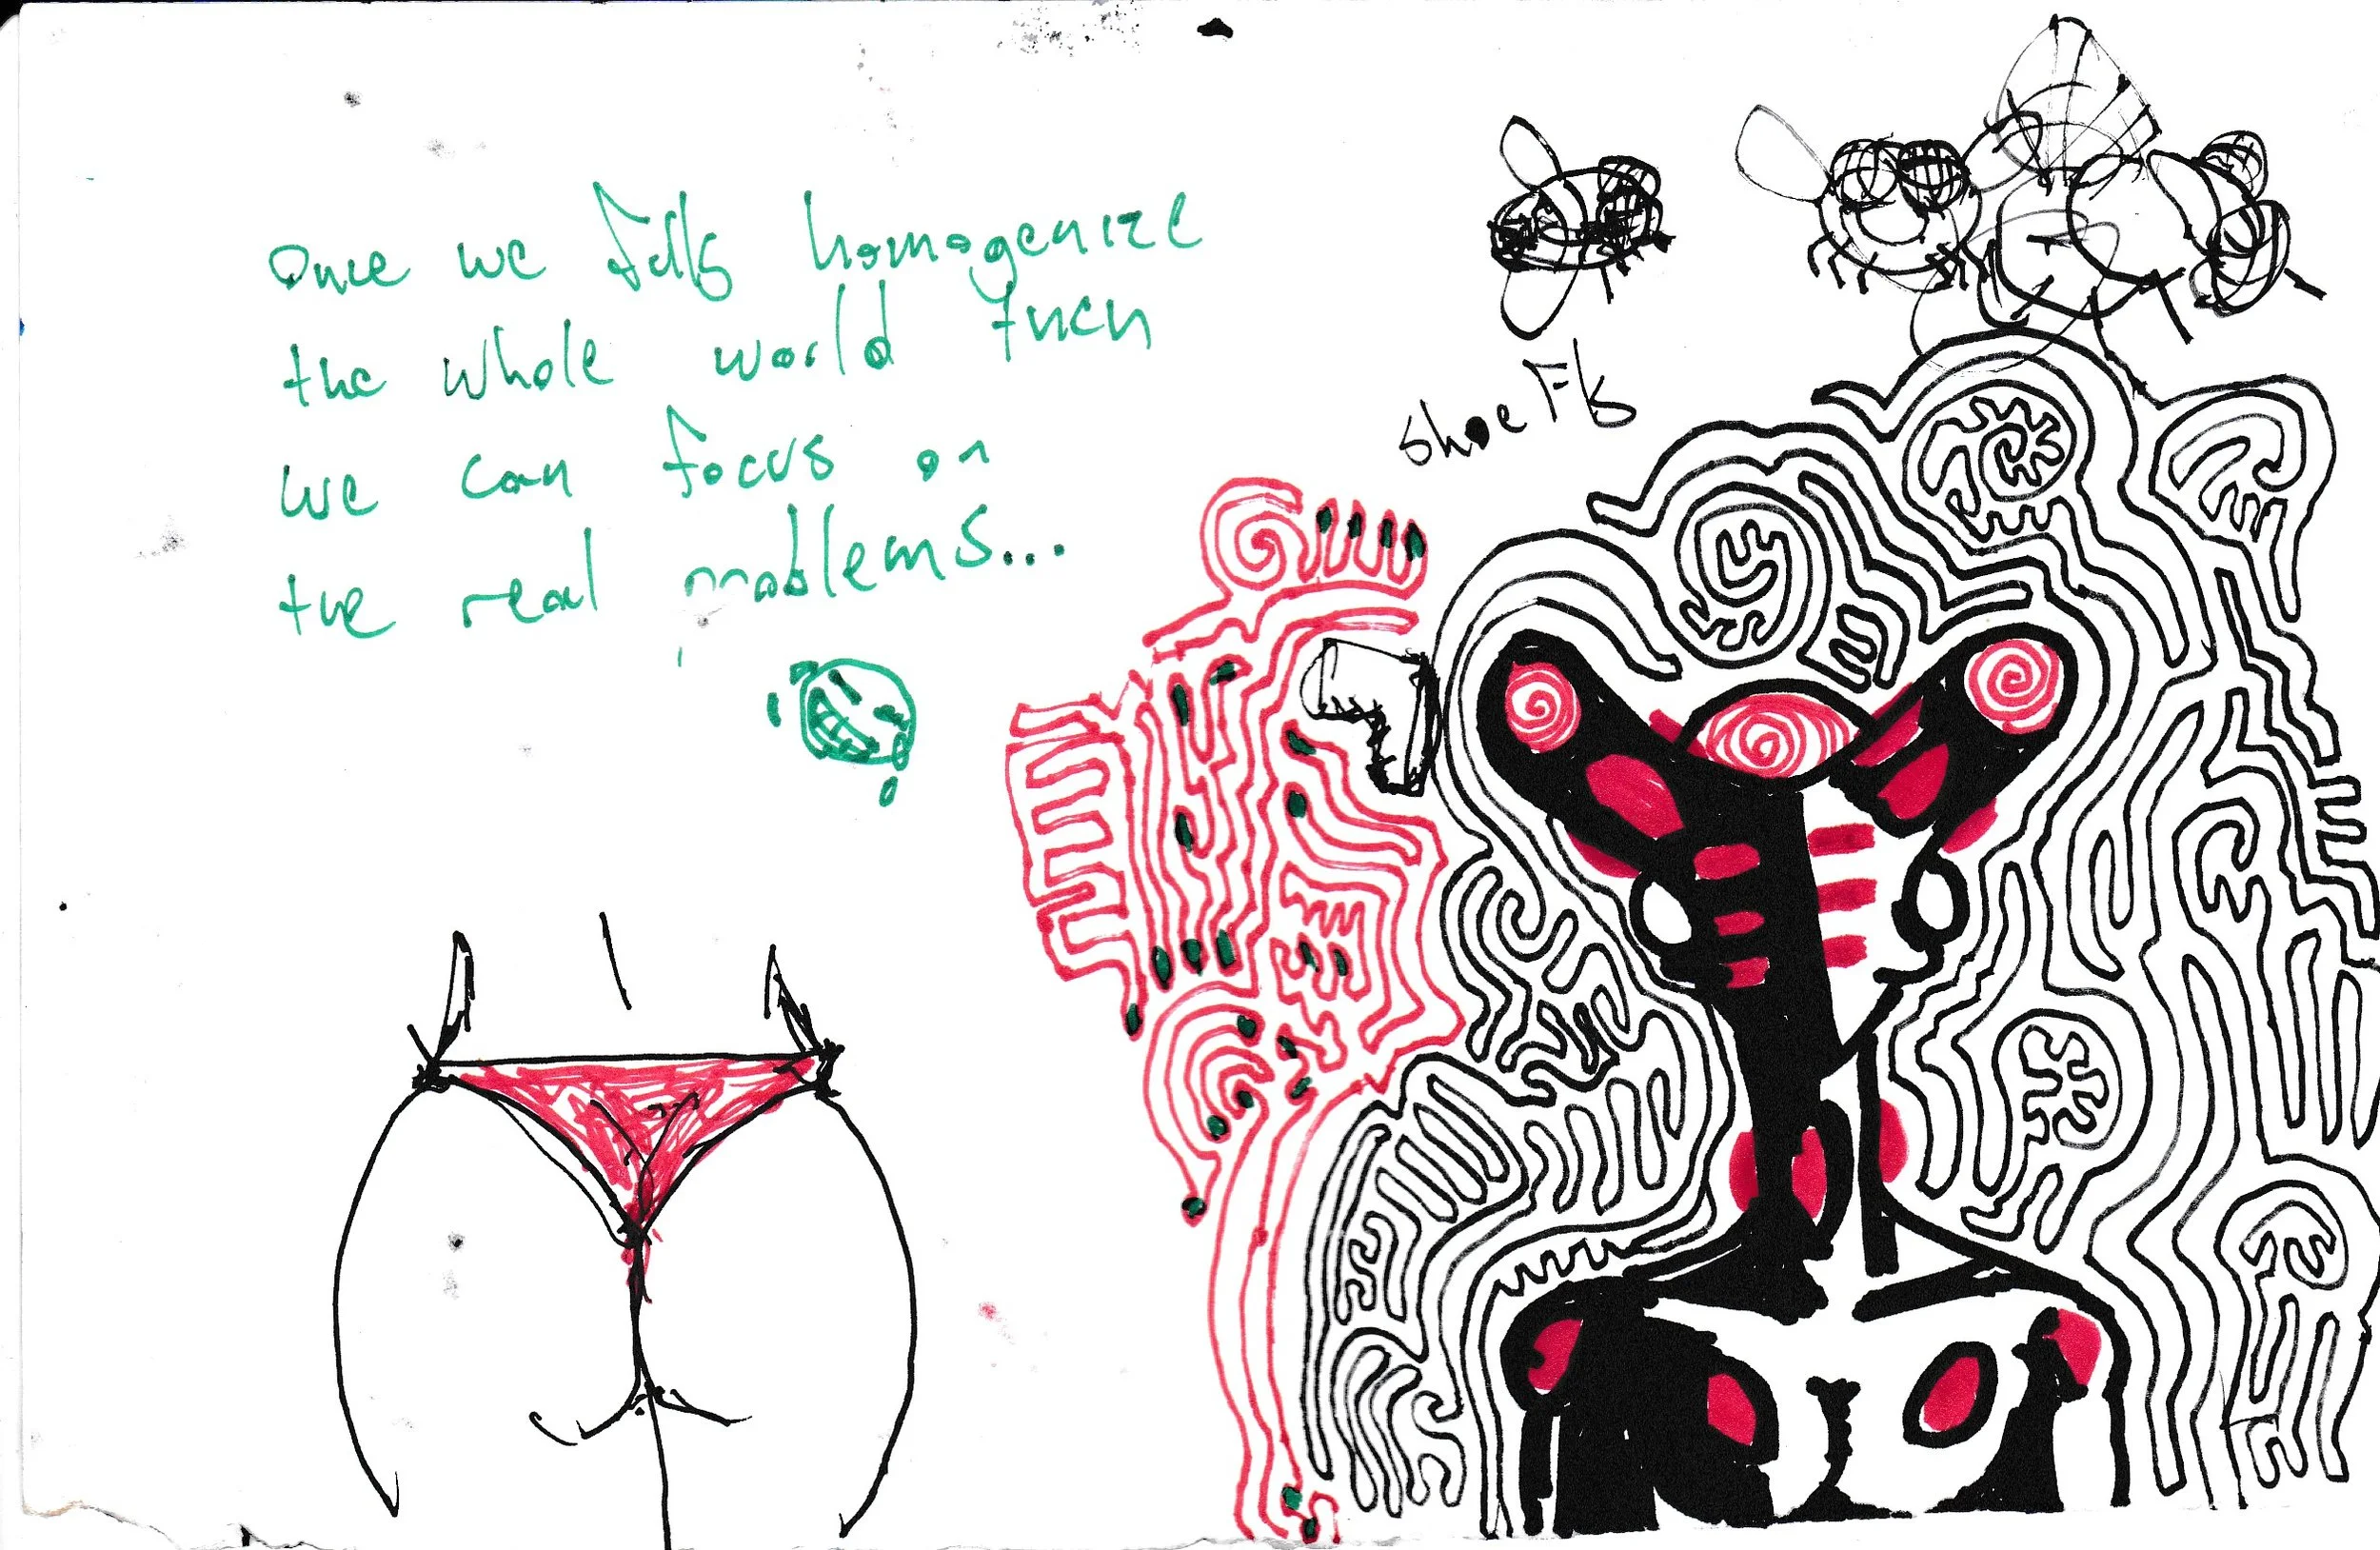 Once we fully homogenize
the whole world then
we can focus on
the real problems...
shoe Fly